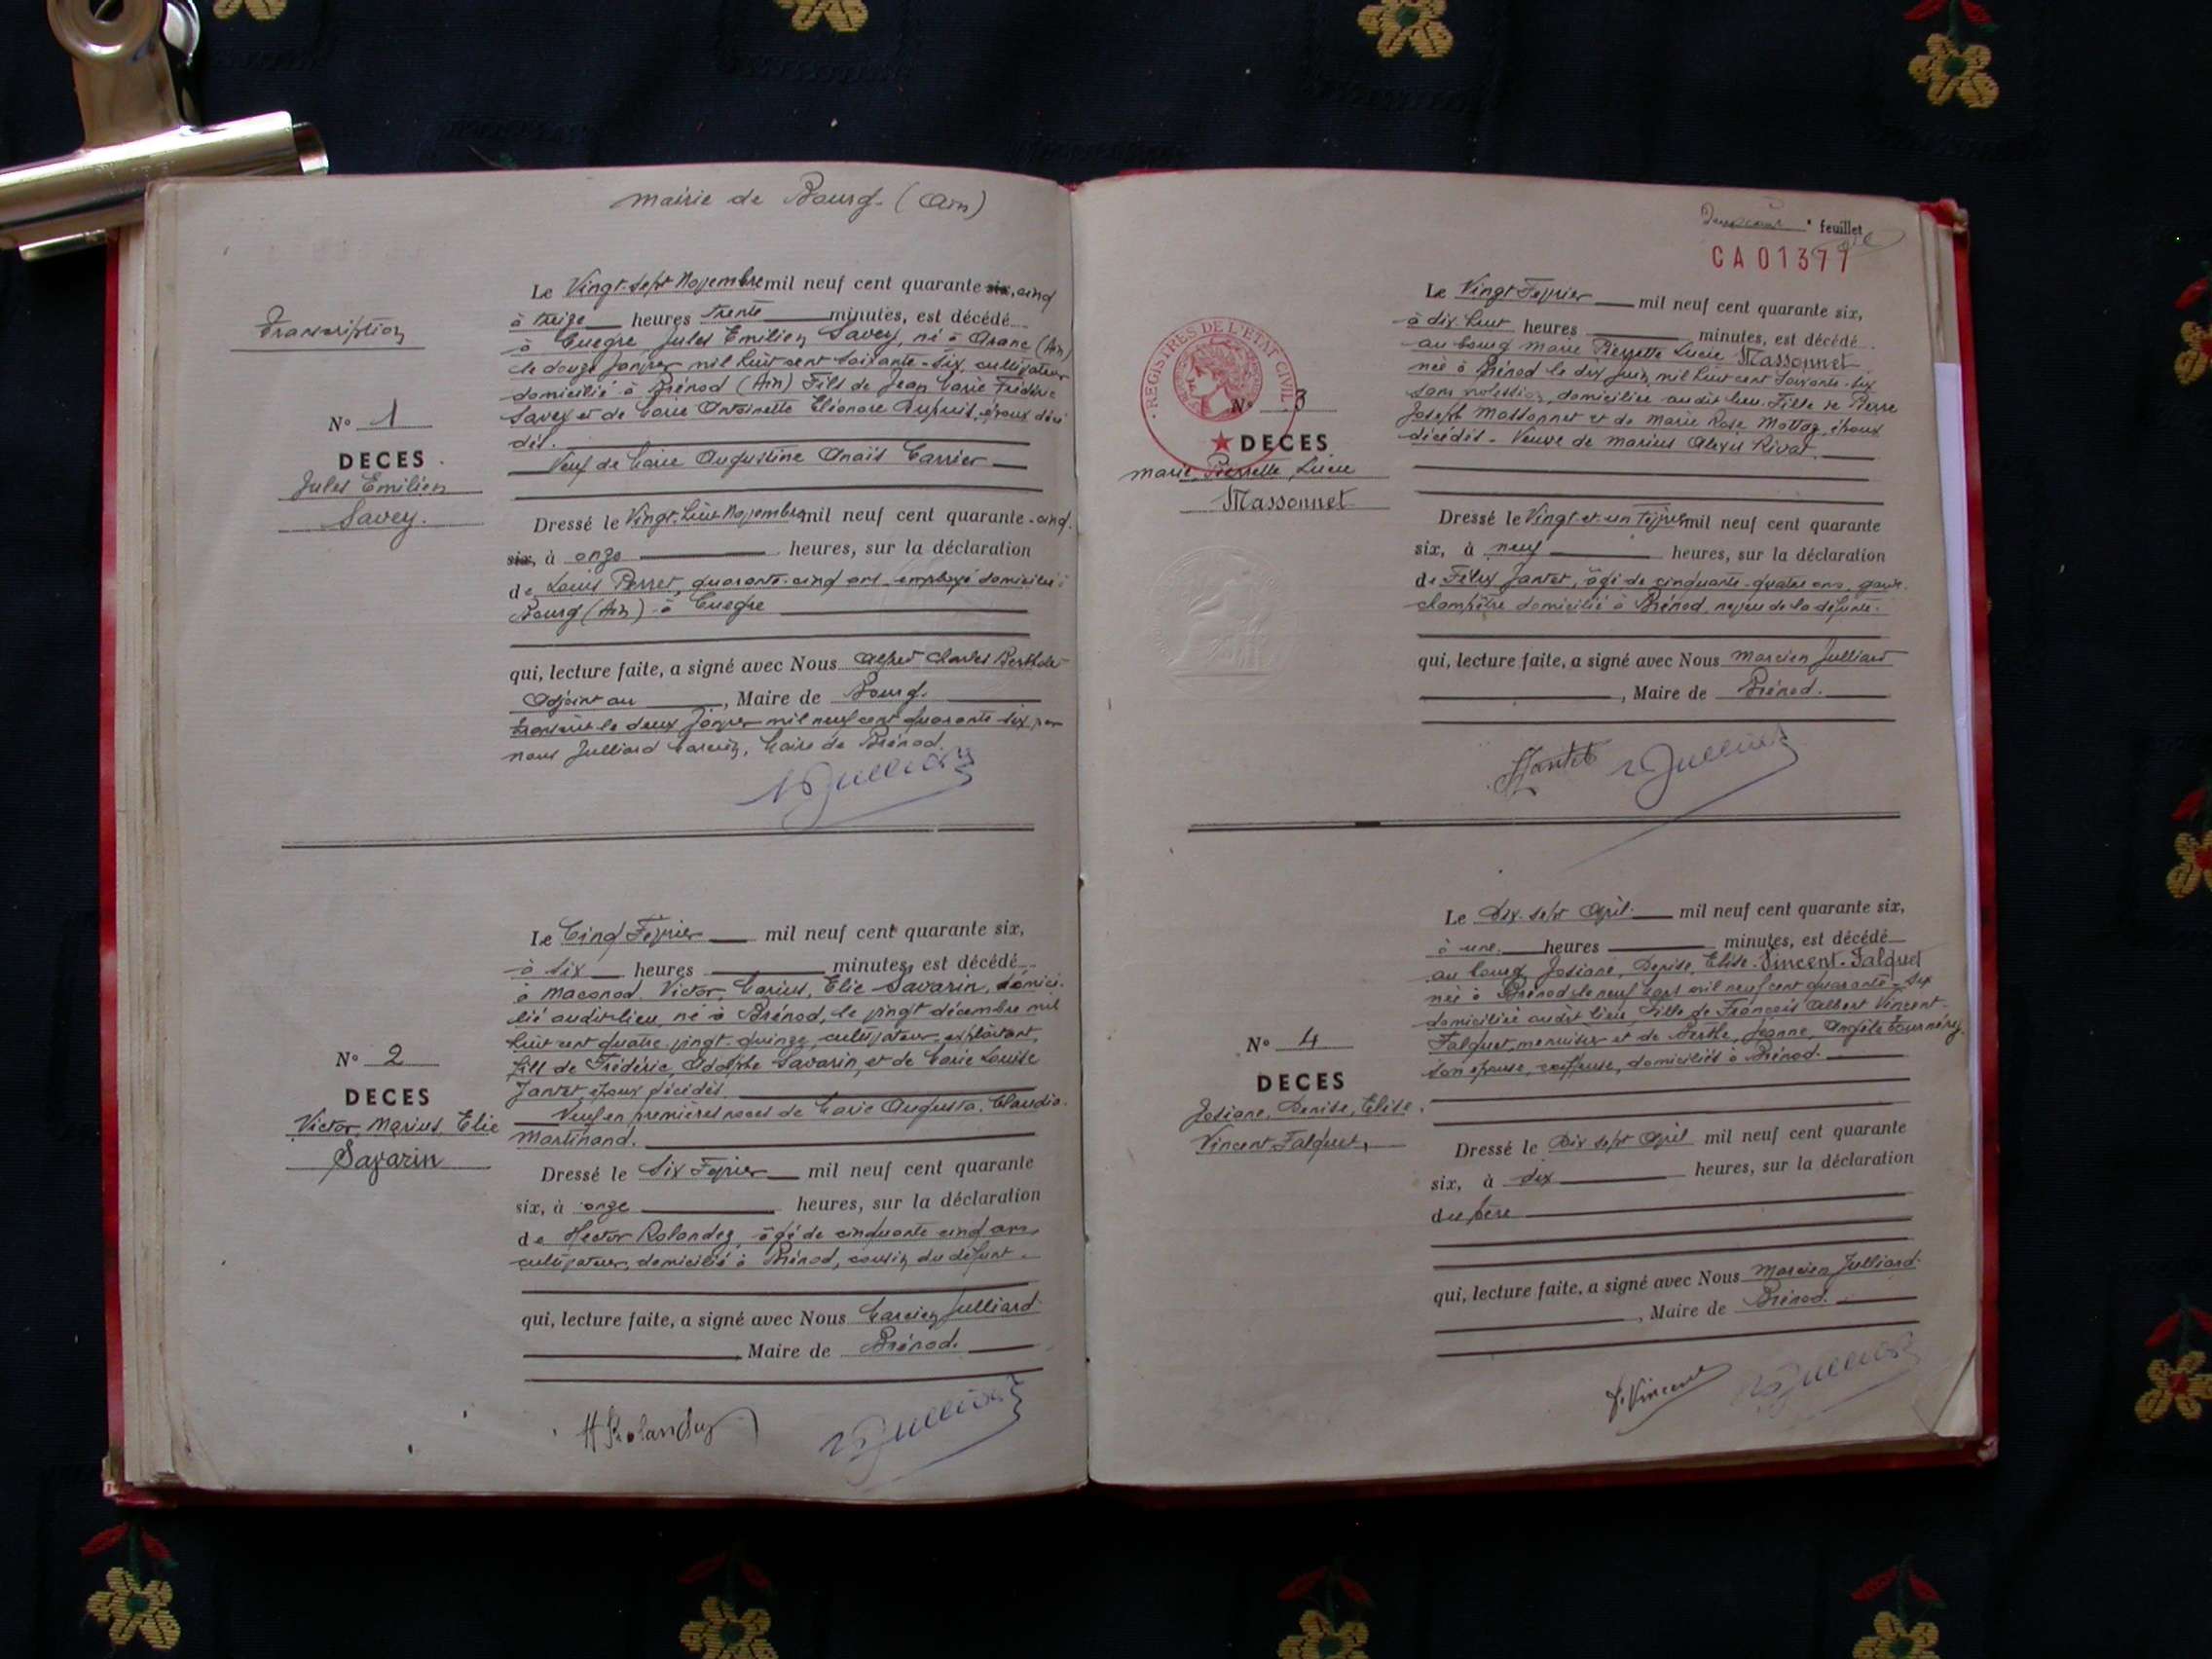 mairie de Bourg. (Ain)
Transcription
N° 1
DECES
Jules Emilien
Savey.
Le Vingt sept Novembre mil neuf cent quarante six, cinq
à treize heures trente minutes, est décédé
à Cuègre Jules Emilien Savey, né à Aranc (Ain)
le douze Janvier mil huit cent soixante-six, cultivateur
domicilié à Brénod (Ain) Fils de Jean Marie Frédéric
Savey et de Marie Antoinette Eléonore Dupuis, époux décé
dés.
Veuf de Marie Augustine Anaïs Carrier
Dressé le Vingt-huit Novembre mil neuf cent quarante-cinq.
six, à onze heures, sur la déclaration
de Louis Perret, quarante-cinq ans employé domicilié à
Bourg (Ain) à Cuègre
qui, lecture faite, a signé avec Nous Alfred Charles
Adjoint au , Maire de Bourg.
transcrit le deux Janvier mil neuf cent quarante-six par
nous Julliard Marcien, Maire de Brénod.
MJulliard
N° 2
DECES
Victor, Marius, Elie
Savarin
Le Cinq Février mil neuf cent quarante six,
à six heures minutes, est décédé
à Maconod, Victor, Marius, Elie Savarin, domici-
lié audit-lieu, né à Brénod, le vingt décembre mil
huit cent quatre-vingt-quinze, cultivateur-exploitant,
fils de Frédéric, Adolphe Savarin, et de Marie Louise
Jantet, époux décédés.
Veuf en premières noces de Marie Augusta, Claudia
Martinand.
Dressé le Six Février mil neuf cent quarante
six, à onze heures, sur la déclaration
de Hector Rolandez, âgé de cinquante cinq ans,
cultivateur, domicilié à Brénod, cousin du défunt
qui, lecture faite, a signé avec Nous Marcien Julliard
Maire de Brénod.
H Rolandez
MJulliard
feuillet
CA 01377
REGISTRES DE L'ETAT CIVIL
N° 3
DECES
Marie, Pierrette, Lucie
Massonnet
Le Vingt Février mil neuf cent quarante six,
à dix huit heures minutes, est décédé
au bourg Marie Pierrette Lucie Massonnet
née à Brénod le dix Juin mil huit cent soixante-six
sans profession, domiciliée audit lieu. Fille de Pierre
Joseph Massonnet et de Marie Rose Mottaz, époux
décédés - Veuve de Marius Alexis Rivat.
Dressé le Vingt-et-un Février mil neuf cent quarante
six, à neuf heures, sur la déclaration
de Félix Jantet, âgé de cinquante-quatre ans, garde-
champêtre domicilié à Brénod neveu de la défunte.
qui, lecture faite, a signé avec Nous Marcien Julliard
, Maire de Brénod.
FJantet MJulliard
N° 4
DECES
Josiane, Denise, Elise.
Vincent Falquet
Le Dix-sept Avril mil neuf cent quarante six,
à une heures minutes, est décédé
au bourg Josiane, Denise, Elise Vincent-Falquet
née à Brénod le neuf Mars mil neuf cent quarante-six
domiciliée audit lieu, Fille de François Albert Vincent-
Falquet, menuisier et de Berthe, Jeanne, Angèle
son épouse, coiffeuse, domiciliés à Brénod.
Dressé le Dix sept Avril mil neuf cent quarante
six, à dix heures, sur la déclaration
du père
qui, lecture faite, a signé avec Nous Marcien Julliard
, Maire de Brénod.
Vincent MJulliard